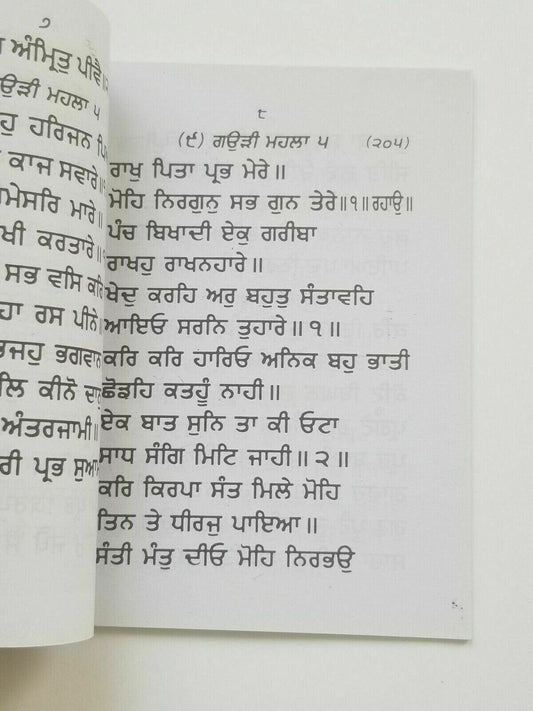 ੭
ਅੰਮ੍ਰਿਤੁ ਪੀਵੈ
ਮਹਲਾ ੫
ਹਰਿਜਨ
ਕਾਜ ਸਵਾਰੇ॥
ਮਾਰੇ॥
ਕਰਤਾਰੇ॥
ਸਭ ਵਸਿ ਕਰਿ
ਰਸ ਪੀਨੇ
ਭਗਵਾਨ
ਕੀਨੋ
ਅੰਤਰਜਾਮੀ॥
ਪ੍ਰਭ
੮
(੯) ਗਉੜੀ ਮਹਲਾ ੫ (੨੦੫)
ਰਾਖੁ ਪਿਤਾ ਪ੍ਰਭ ਮੇਰੇ॥
ਮੋਹਿ ਨਿਰਗੁਨੁ ਸਭ ਗੁਨ ਤੇਰੇ॥੧॥ਰਹਾਉ॥
ਪੰਚ ਬਿਖਾਦੀ ਏਕੁ ਗਰੀਬਾ
ਰਾਖਹੁ ਰਾਖਨਹਾਰੇ॥
ਖੇਦੁ ਕਰਹਿ ਅਰੁ ਬਹੁਤੁ ਸੰਤਾਵਹਿ
ਆਇਓ ਸਰਨਿ ਤੁਹਾਰੇ॥੧॥
ਕਰਿ ਕਰਿ ਹਾਰਿਓ ਅਨਿਕ ਬਹੁ ਭਾਤੀ
ਛੋਡਹਿ ਕਤਹੂੰ ਨਾਹੀ॥
ਏਕ ਬਾਤ ਸੁਨਿ ਤਾ ਕੀ ਓਟਾ
ਸਾਧ ਸੰਗਿ ਮਿਟਿ ਜਾਹੀ॥੨॥
ਕਰਿ ਕਿਰਪਾ ਸੰਤ ਮਿਲੇ ਮੋਹਿ
ਤਿਨ ਤੇ ਧੀਰਜੁ ਪਾਇਆ॥
ਸੰਤੀ ਮੰਤੁ ਦੀਓ ਮੋਹਿ ਨਿਰਭਉ